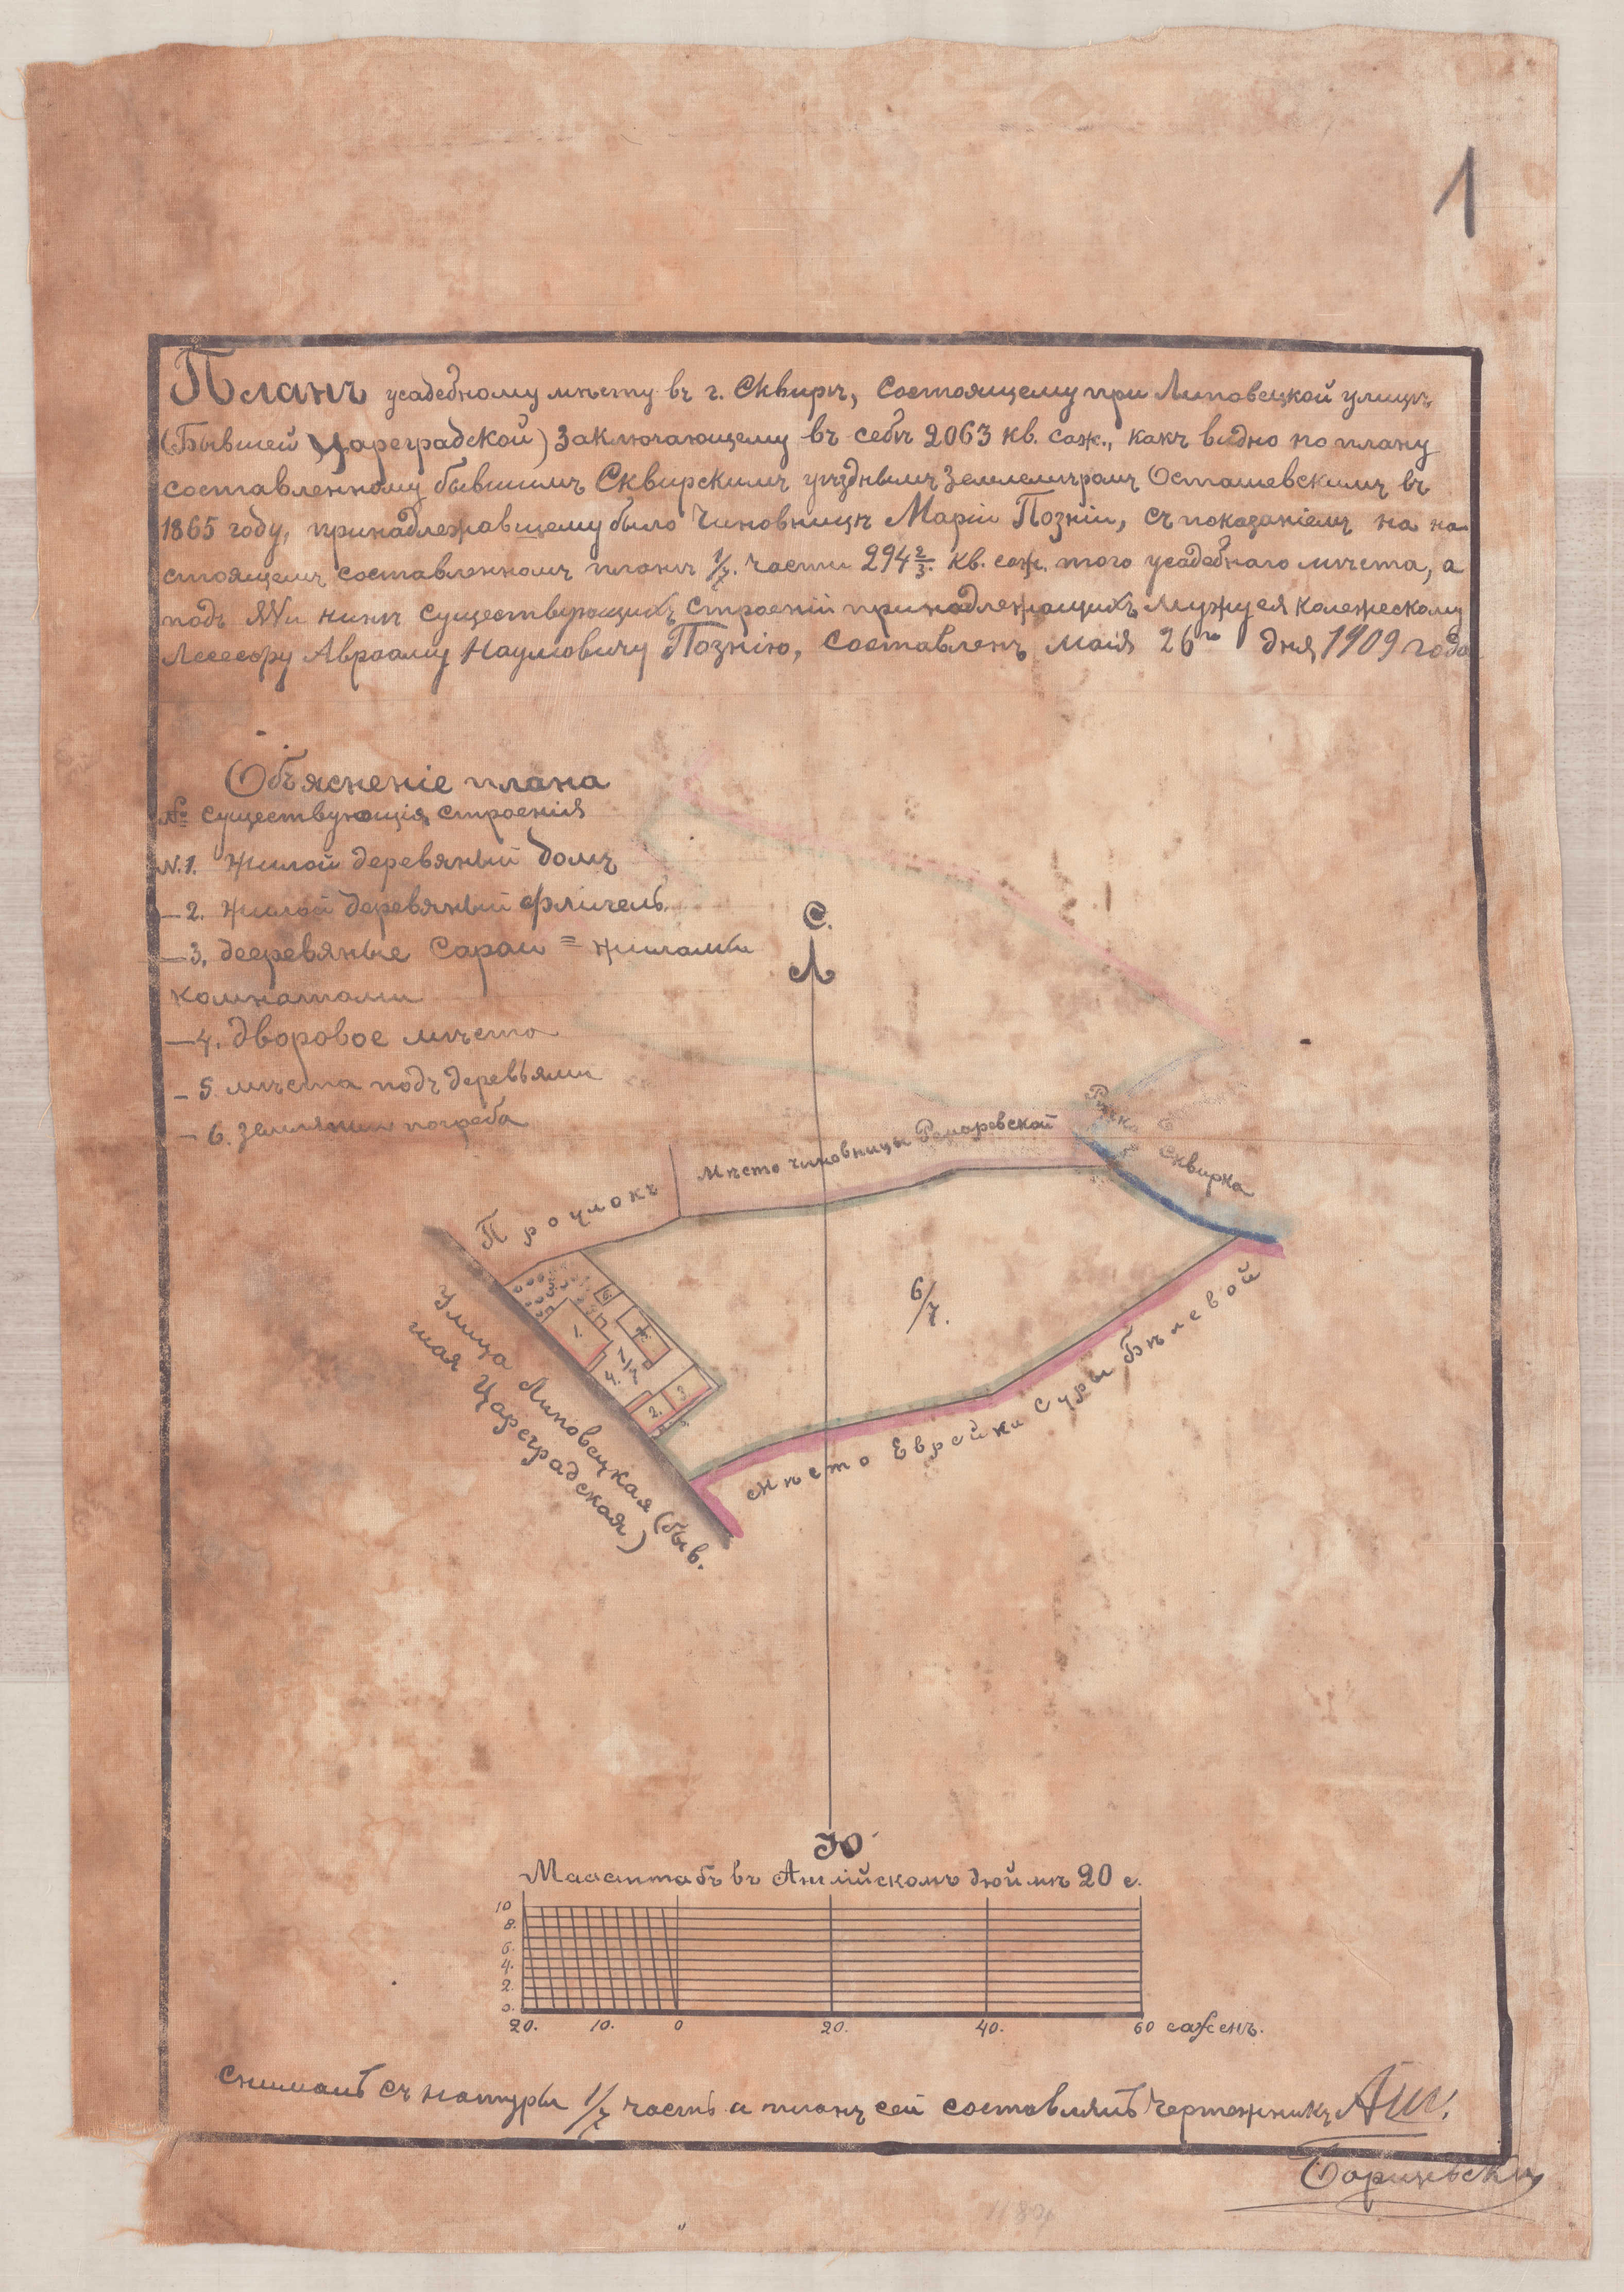 1
Планъ усадебному мѣсту въ г. Сквирѣ, состоящему при Липовецкой улицѣ,
(Бывшей Цареградской) заключающему въ себѣ 2063 кв. саж., какъ видно по плану
составленному бывшимъ Сквирскимъ уѣзднымъ Землемѣромъ Осташевскимъ въ
1865 году, принадлежавщему было Чиновницѣ Маріи Позніи, съ показаніемъ на на-
стоящемъ составленномъ планѣ 1/7. части 294 2/3. кв. саж. того усадебнаго мѣста, а
подъ №№ нинѣ существующихъ строеній принадлежащихъ мужу ея колежескому
Ассесору Авраому Наумовичу Познію, составленъ маія 26го дня 1909 года
Объясненіе плана
№ существующія строенія
N.1. Жилой деревяный домъ
—2. жилой деревяный флигель.
—3. дееревяные сараи = жиламы
комнатами
—4. дворовое мѣсто
– 5 мѣста подъ деревьями
– 6. земляний погреба
С.
Мѣсто чиновницы
Рѣчка Сквирка
Проулокъ
6/7.
5
6
1.
1/7
4.
3
2.
Улица Липовецкая (быв.
шая Цареградская)
мѣсто Еврейки Суры Бѣлевой
Ю
Масштабъ въ Англійскомъ дюймѣ 20 с.
10
8.
6.
4.
2.
0.
20. 10. 0 20. 40. 60 саженъ.
Снималъ съ натуры 1/7 часть и планъ сей составлялъ Чертежникъ АШ.